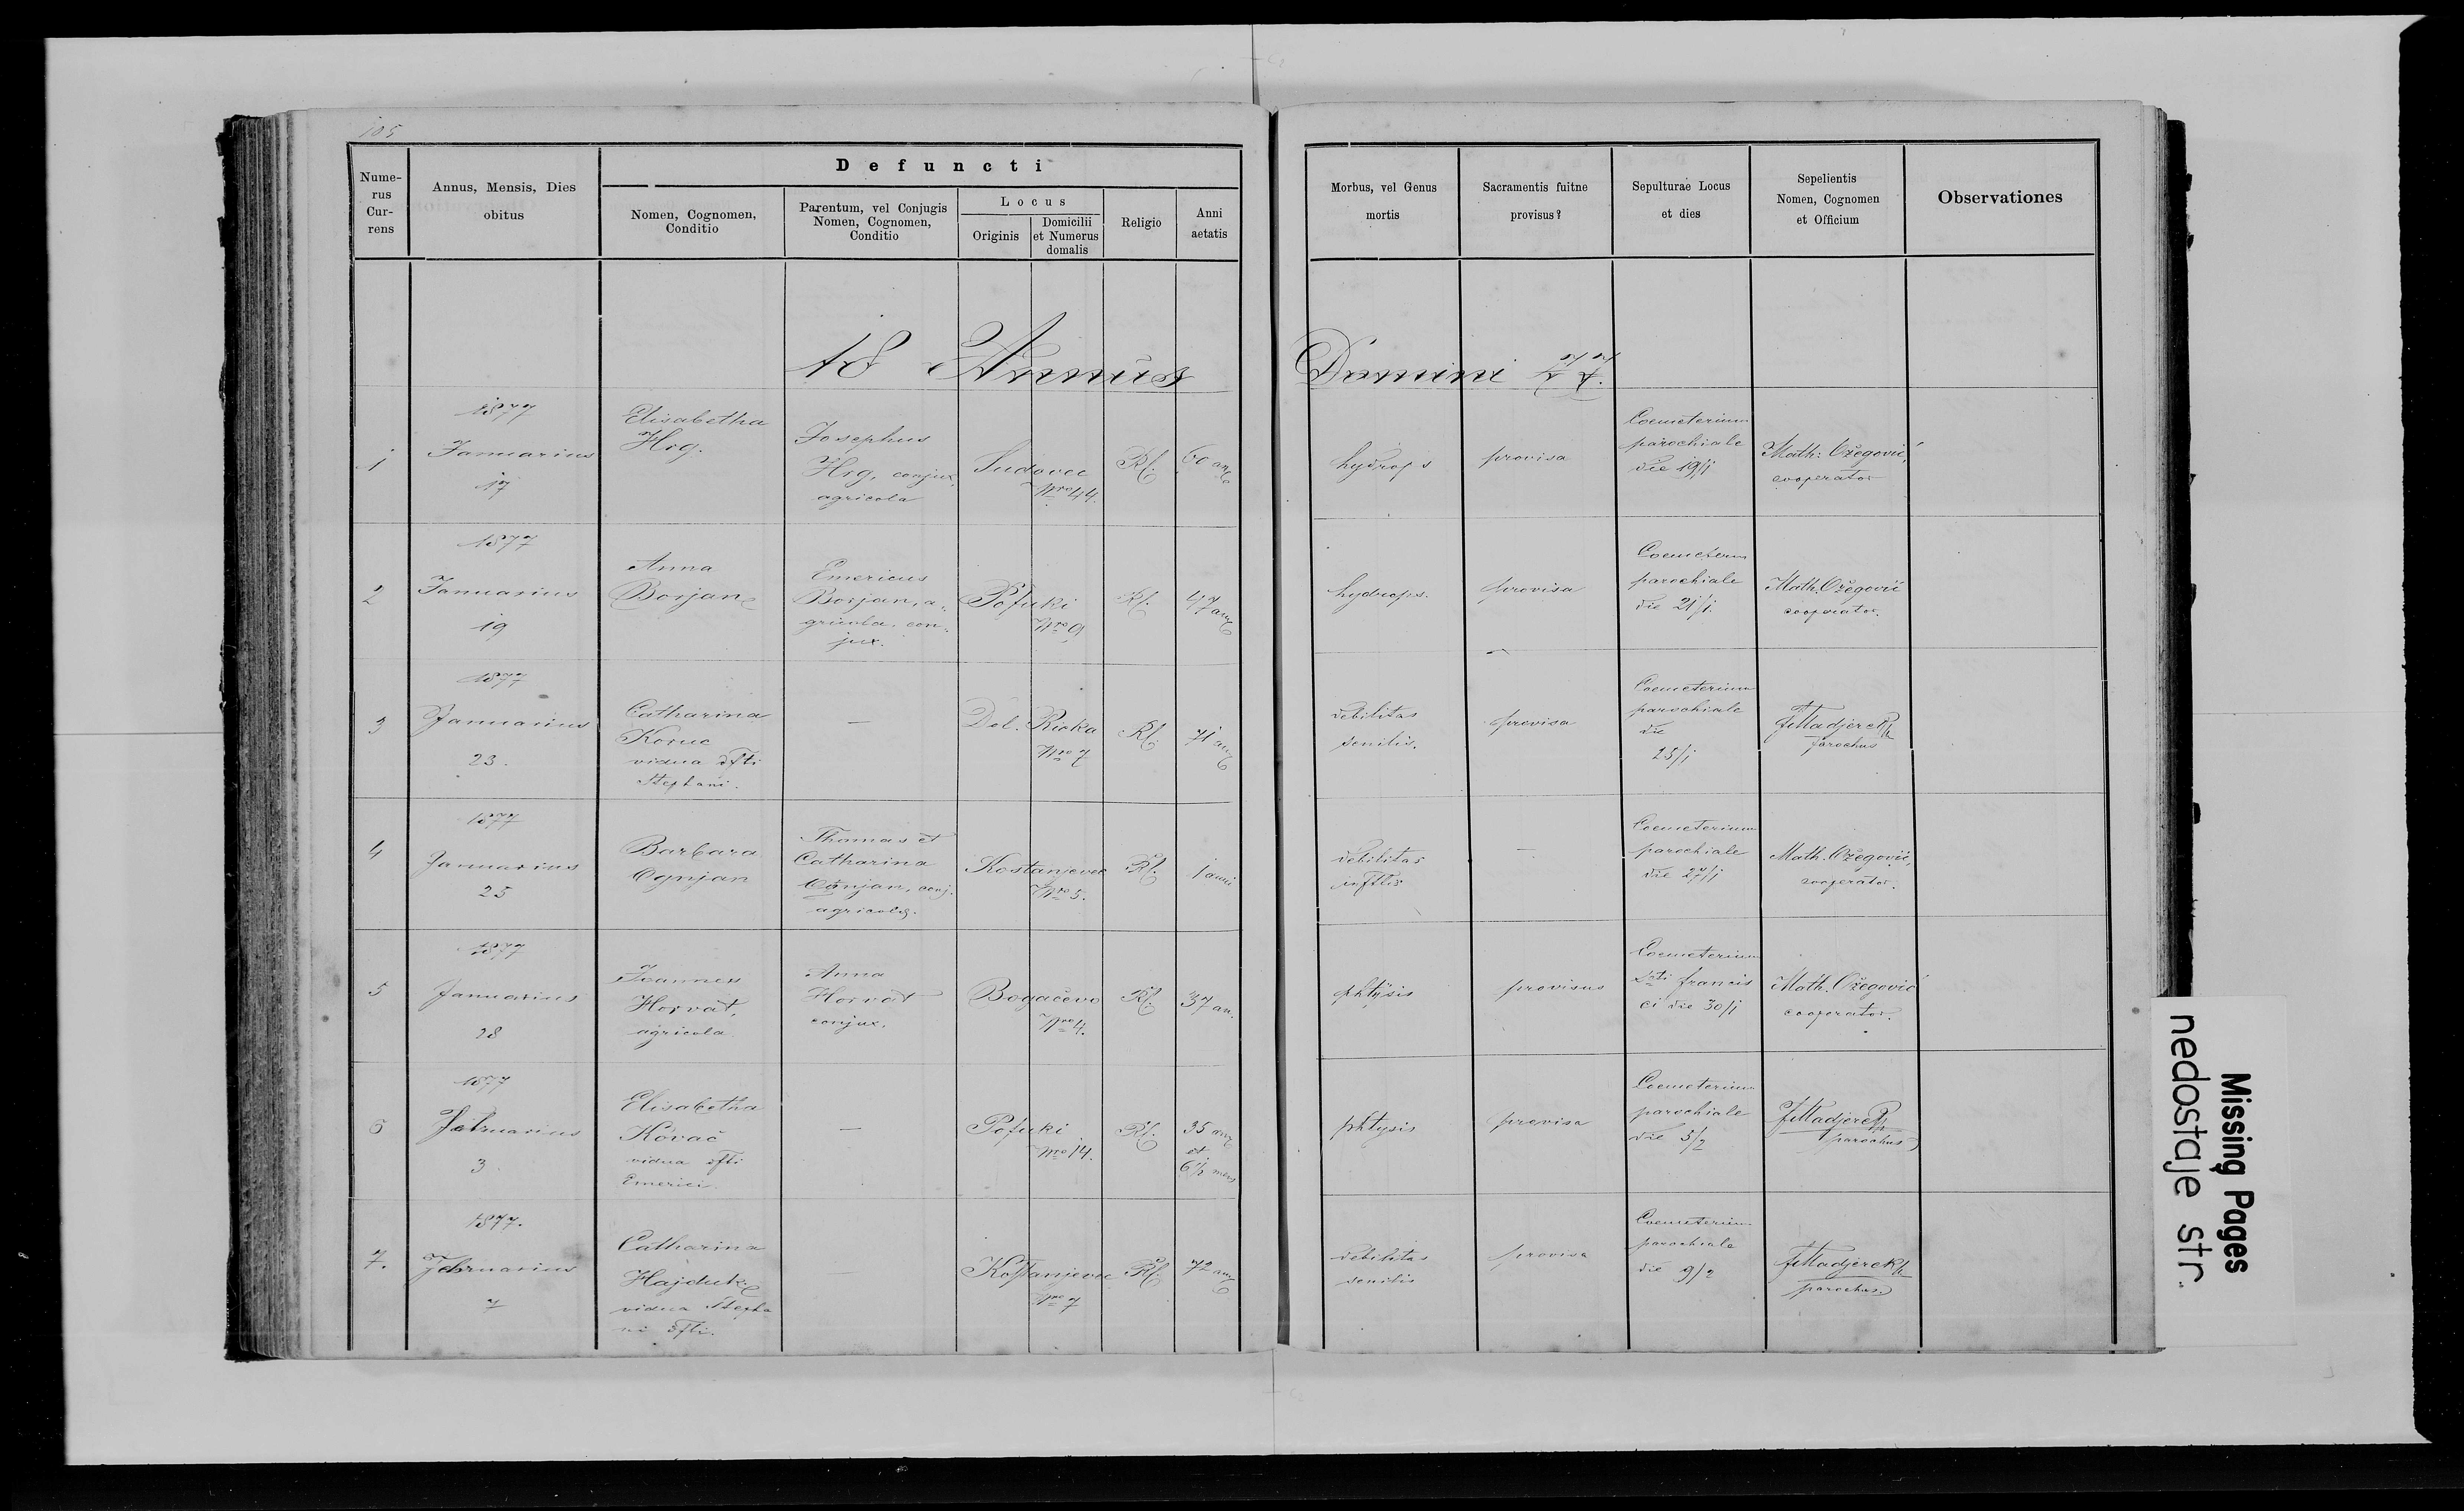 105
Defuncti
Nume-
rus
Cur-
rens
Annus, Mensis, Dies
obitus
Nomen, Cognomen,
Conditio
Parentum, vel Conjugis
Nomen, Cognomen,
Conditio
Locus
Originis
Domicilii
et Numerus
domalis
Religio
Anni
aetatis
Morbus, vel Genus
mortis
Sacramentis fuitne
provisus?
Sepulturae Locus
et dies
Sepelientis
Nomen, Cognomen
et Officium
Observationes
18 Annus Domini 77.
1
1877
Januarius
17
Elisabetha
Hrg.
Josephus
Hrg, conjux,
agricola
Sudovec
Nro 44.
Rk.
60 an
hydrops
provisa
Coemeterium
parochiale
die 19/1
Math. Ožegović,
cooperator
2
1877
Januarius
19
Anna
Borjan
Emericus
Borjan, a-
gricola, con-
jux.
Pofuki
Nro 9
Rk.
47 an
hydrops.
provisa
Coemeterium
parochiale
die 21/1
Math. Ožegović
cooperator.
3
1877
Januarius
23.
Catharina
Koruc
vidua dfti
Stephani.
—
Dol. Rieka
Nro 7
Rk.
71 an
debilitas
senilis.
provisa
Coemeterium
parochiale
die
25/1
Madjerek
parochus
4
1877
Januarius
25
Barbara
Ognjan
Thomas et
Catharina
Ognjan, conj.
agricolae.
Kostanjevec
Nro 5.
Rk.
1 anni
debilitas
inftlis
—
Coemeterium
parochiale
die 27/1
Math. Ožegović,
cooperator.
5
1877
Januarius
28
Joannes
Horvat,
agricola
Anna
Horvat
conjux.
Bogačevo
Nro 4.
Rk.
37 an.
phtysis
provisus
Coemeterium
Scti francis
ci die 30/1
Math. Ožegović
cooperator.
6
1877
Februarius
3.
Elisabetha
Kovač
vidua dfti
Emerici.
—
Pofuki
Nro 14.
Rk.
35 an
et
6 1/2 mens
phtysis
provisa
Coemeterium
parochiale
die 5/2
Madjerek
parochus
7.
1877.
Februarius
7
Catharina
Hajduk
vidua Stepha
ni dfti.
—
Kostanjevec
Nro 7
Rk.
72 an
debilitas
senilis
provisa
Coemeterium
parochiale
die 9/2
Madjerek
parochus
Missing Pages
nedostaje str.